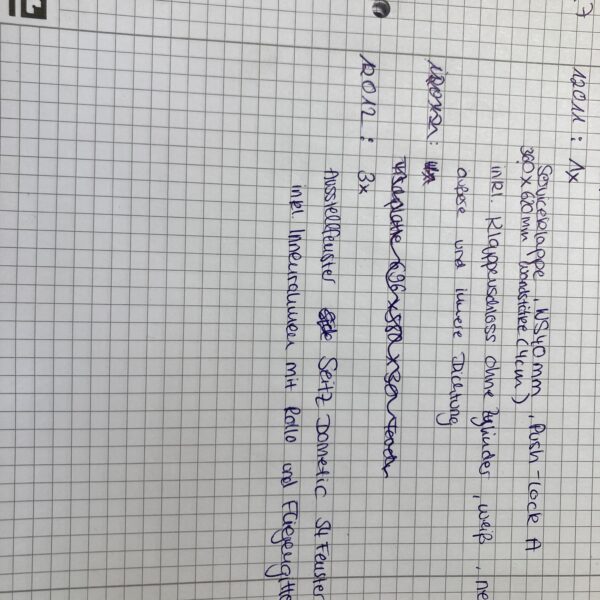 12011: 1x
Serviceklappe, WS40mm, Push-lock A
360 x 620mm Wandstärke (4cm)
inkl. Klappenschloss ohne Zylinder, weiß, ne
äußere und innere Dichtung
12012: 3x
Ausstellfenster Seitz Dometic S4 Fenster
inkl. Innenrahmen mit Rollo und Fliegengitte